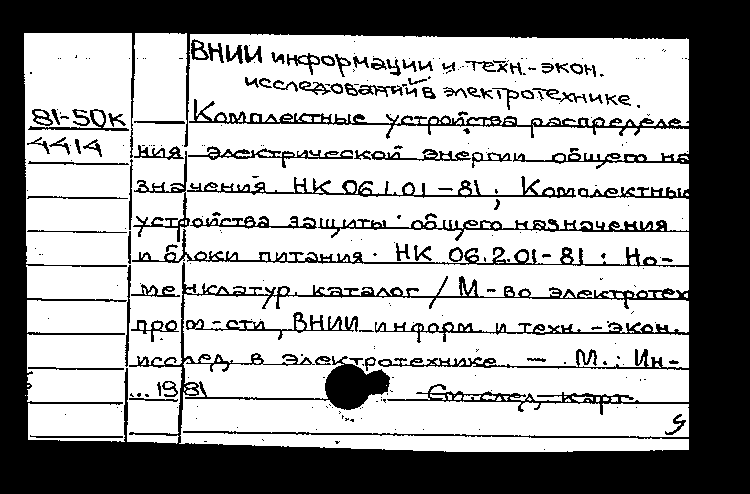 ВНИИ информации и техн.-экон.
исследований в электротехнике.
81-50к
4414
Комплектные устройства распределе-
ния электрической энергии общего на
значения. НК 06.1.01-81; Комплектные
устройства защиты общего назначения
и блоки питания. НК 06.2.01-81: Но-
менклатур. каталог / М-во электротех
пром-сти, ВНИИ информ. и техн.-экон.
исслед. в электротехнике. — М.: Ин-
...1981
См. след. карт.